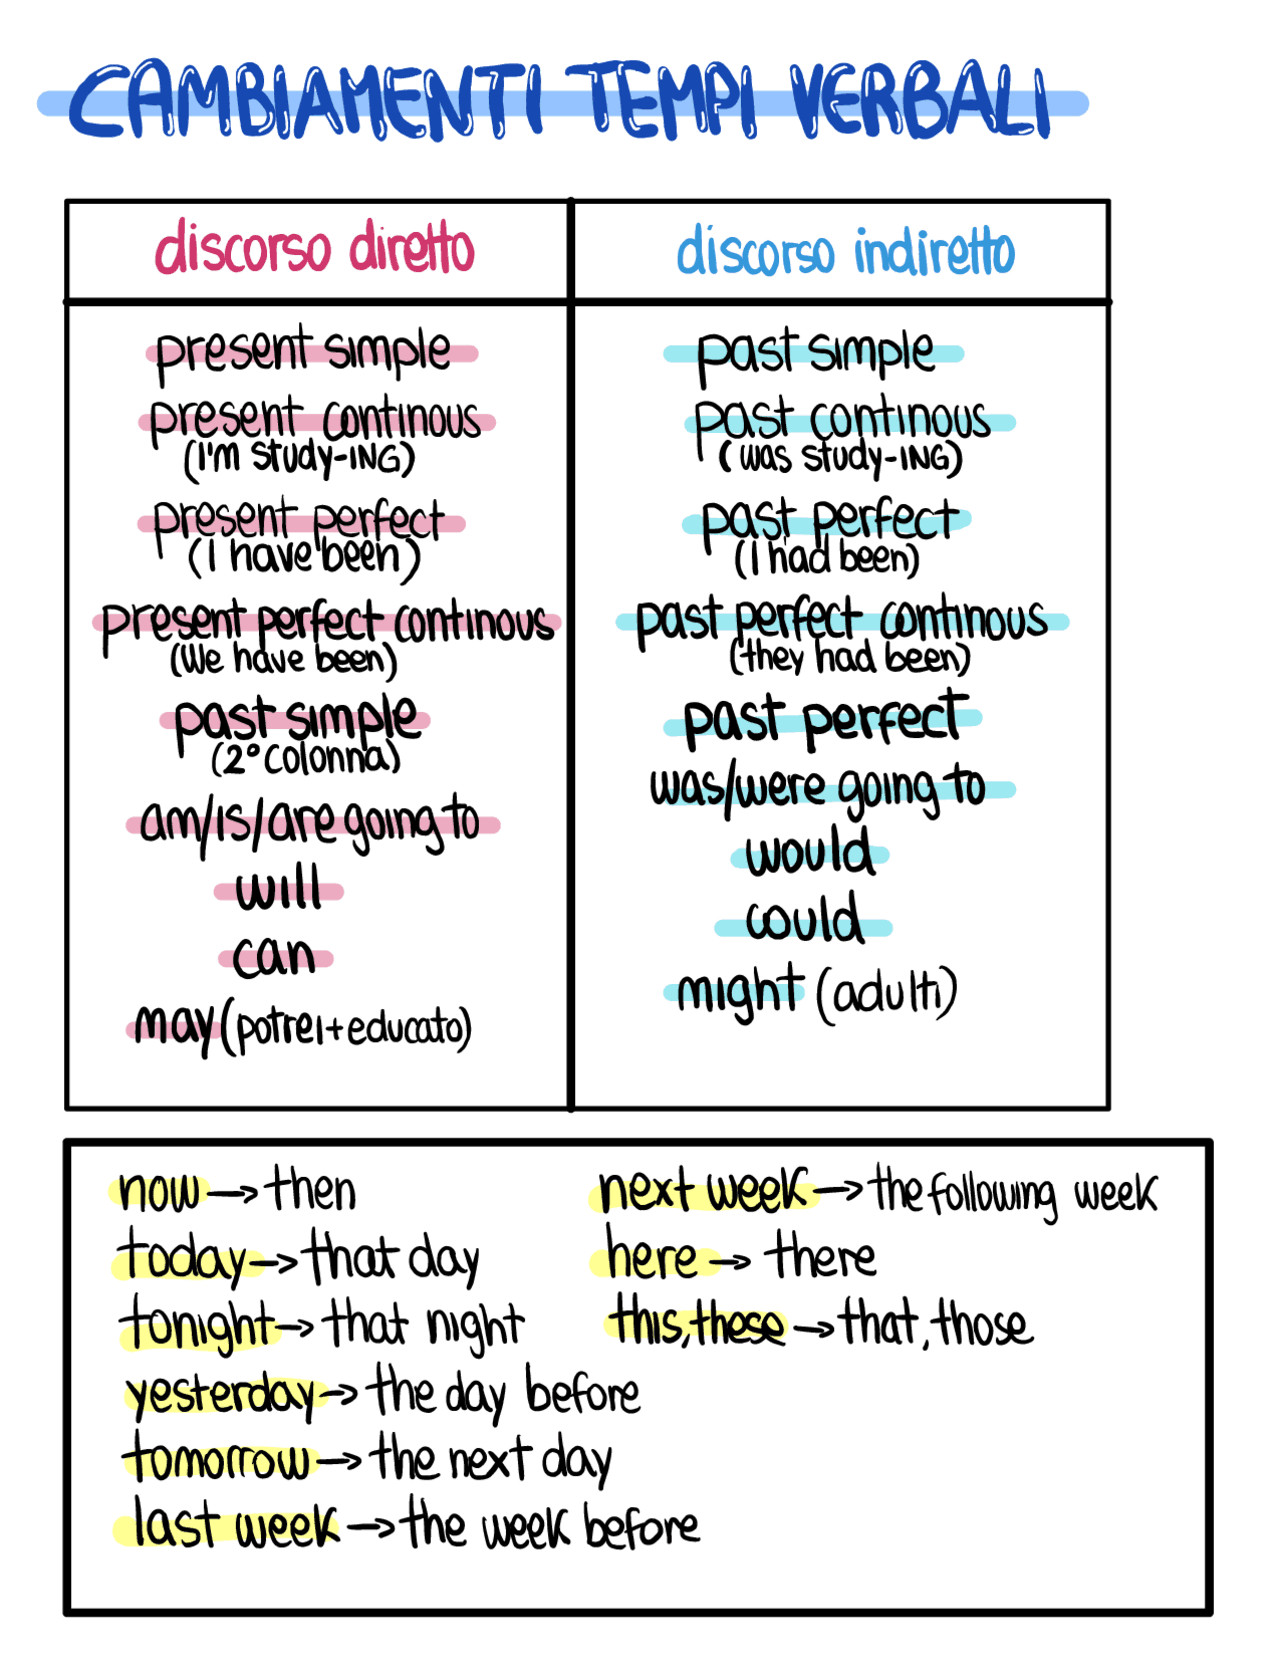 CAMBIAMENTI TEMPI VERBALI
discorso diretto
present simple
present continous
(I'm study-ING)
present perfect
(I have been)
present perfect continous
(We have been)
past simple
(2° colonna)
am/is/are going to
will
can
may (potrei+educato)
discorso indiretto
past simple
past continous
(was study-ING)
past perfect
(I had been)
past perfect continous
(they had been)
past perfect
was/were going to
would
could
might (adulti)
now → then
today → that day
tonight → that night
yesterday → the day before
tomorrow → the next day
last week → the week before
next week → the following week
here → there
this, these → that, those